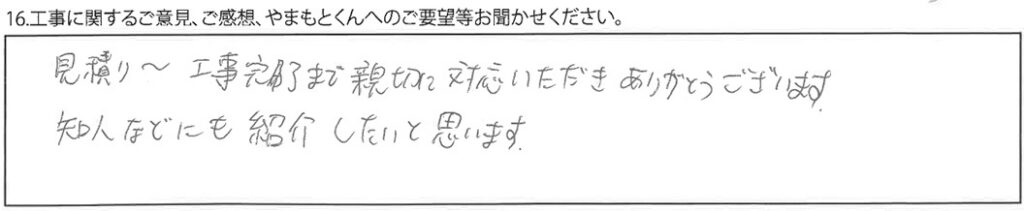 16.工事に関するご意見、ご感想、やまもとくんへのご要望等お聞かせください。
見積り〜工事完了まで親切に対応いただきありがとうございます。
知人などにも紹介したいと思います。